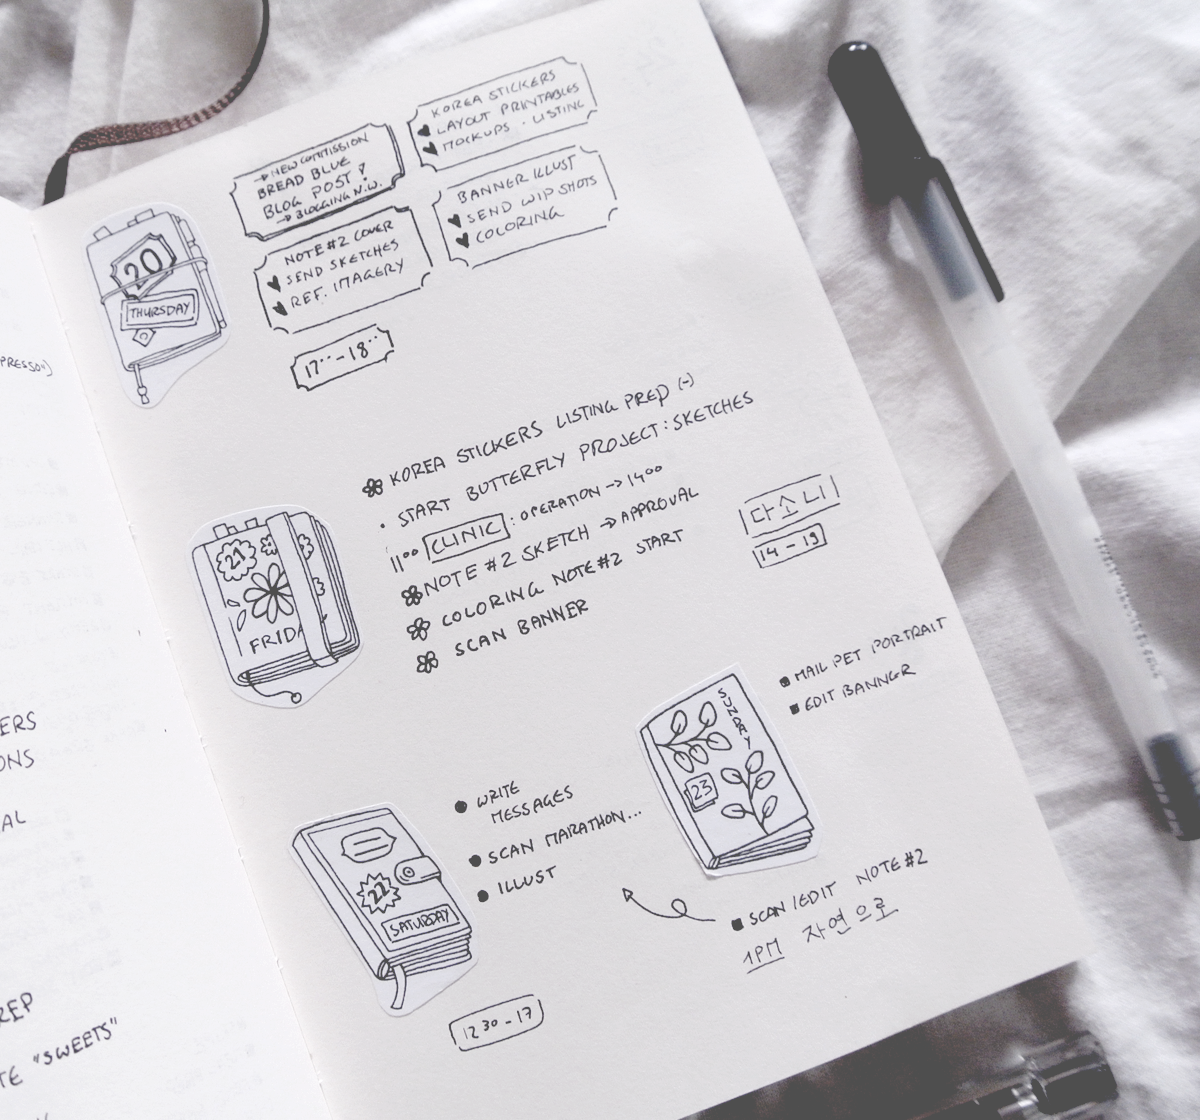 PRESSO")
ERS
ONS
AL
REP
TE "SWEETS"
20
THURSDAY
→ NEW COMMISSION
BREAD BLUE
BLOG POST!
→ BLOGGING N.W.
KOREA STICKERS
♥ LAYOUT PRINTABLES
♥ MOCKUPS · LISTING
NOTE #2 COVER
♥ SEND SKETCHES
♥ REF. IMAGERY
BANNER ILLUST
♥ SEND WIP SHOTS
♥ COLORING
17°° - 18°°
21
FRIDA
KOREA STICKERS LISTING PREP (-)
· START BUTTERFLY PROJECT: SKETCHES
11°° CLINIC: OPERATION → 14°°
NOTE #2 SKETCH → APPROVAL
COLORING NOTE #2 START
SCAN BANNER
다소니
14 - 19
22
SATURDAY
• WRITE
MESSAGES
• SCAN MARATHON...
• ILLUST
12 30 - 17
SUNDAY
23
■ MAIL PET PORTRAIT
■ EDIT BANNER
■ SCAN/EDIT NOTE #2
1PM 자연으로